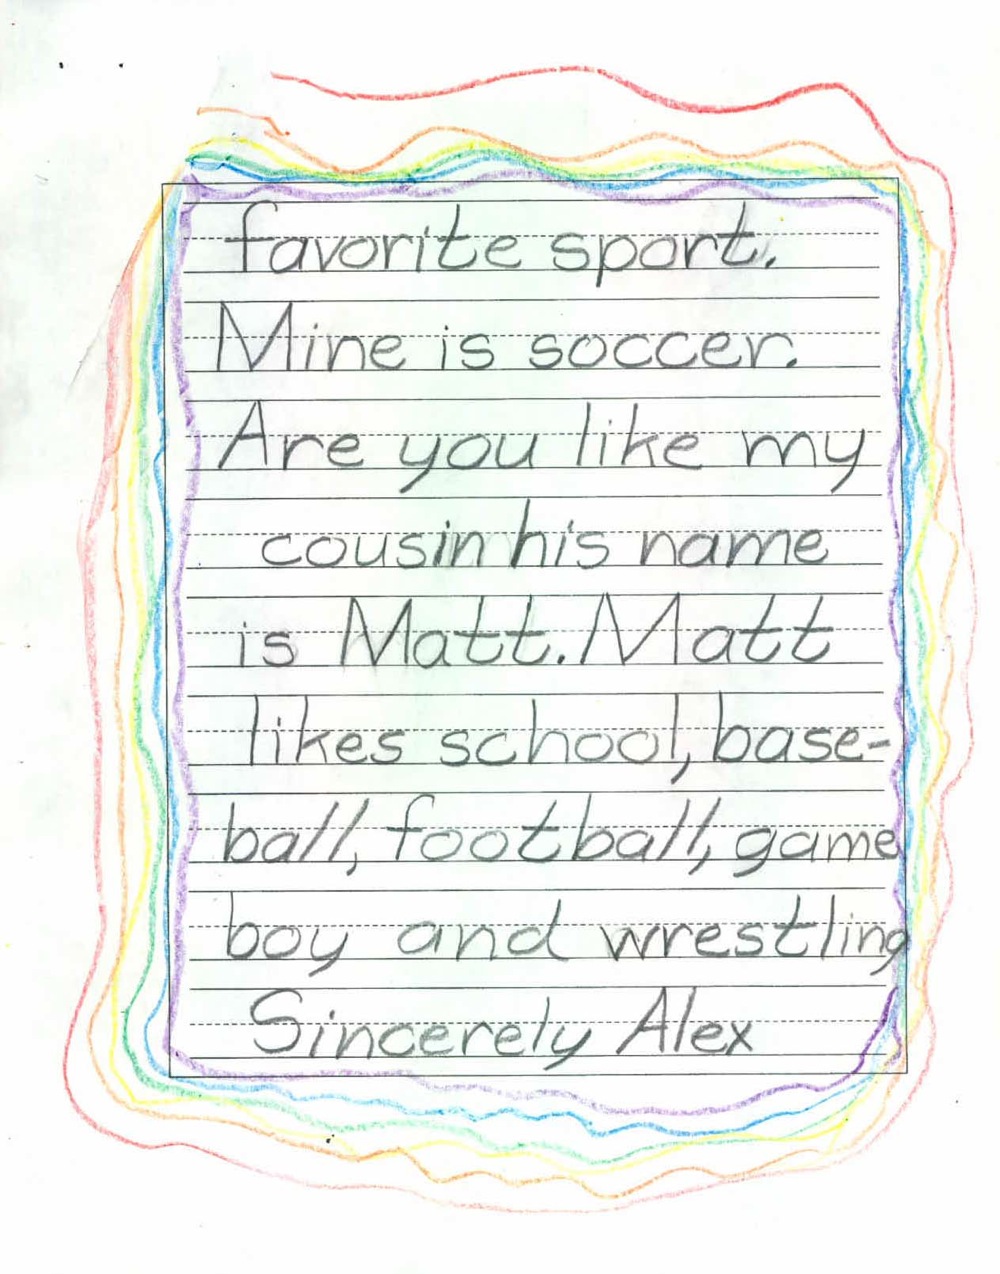 favorite sport.
Mine is soccer.
Are you like my
cousin his name
is Matt. Matt
likes school, base-
ball, football, game
boy and wrestling
Sincerely Alex